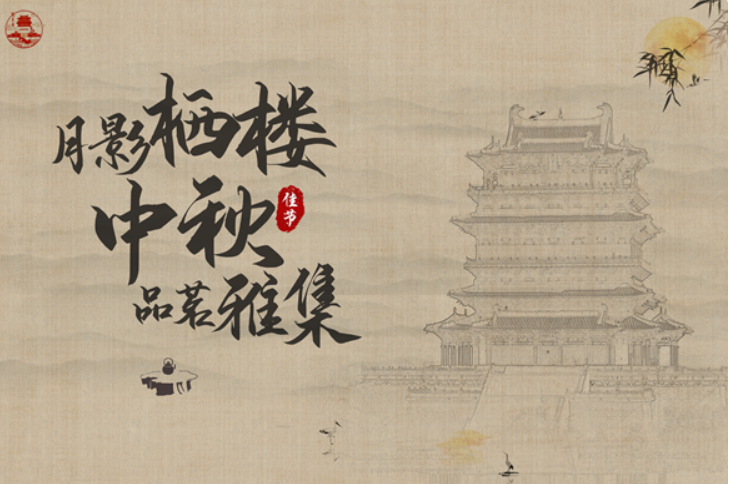 月影栖楼
中秋
佳节
品茗雅集